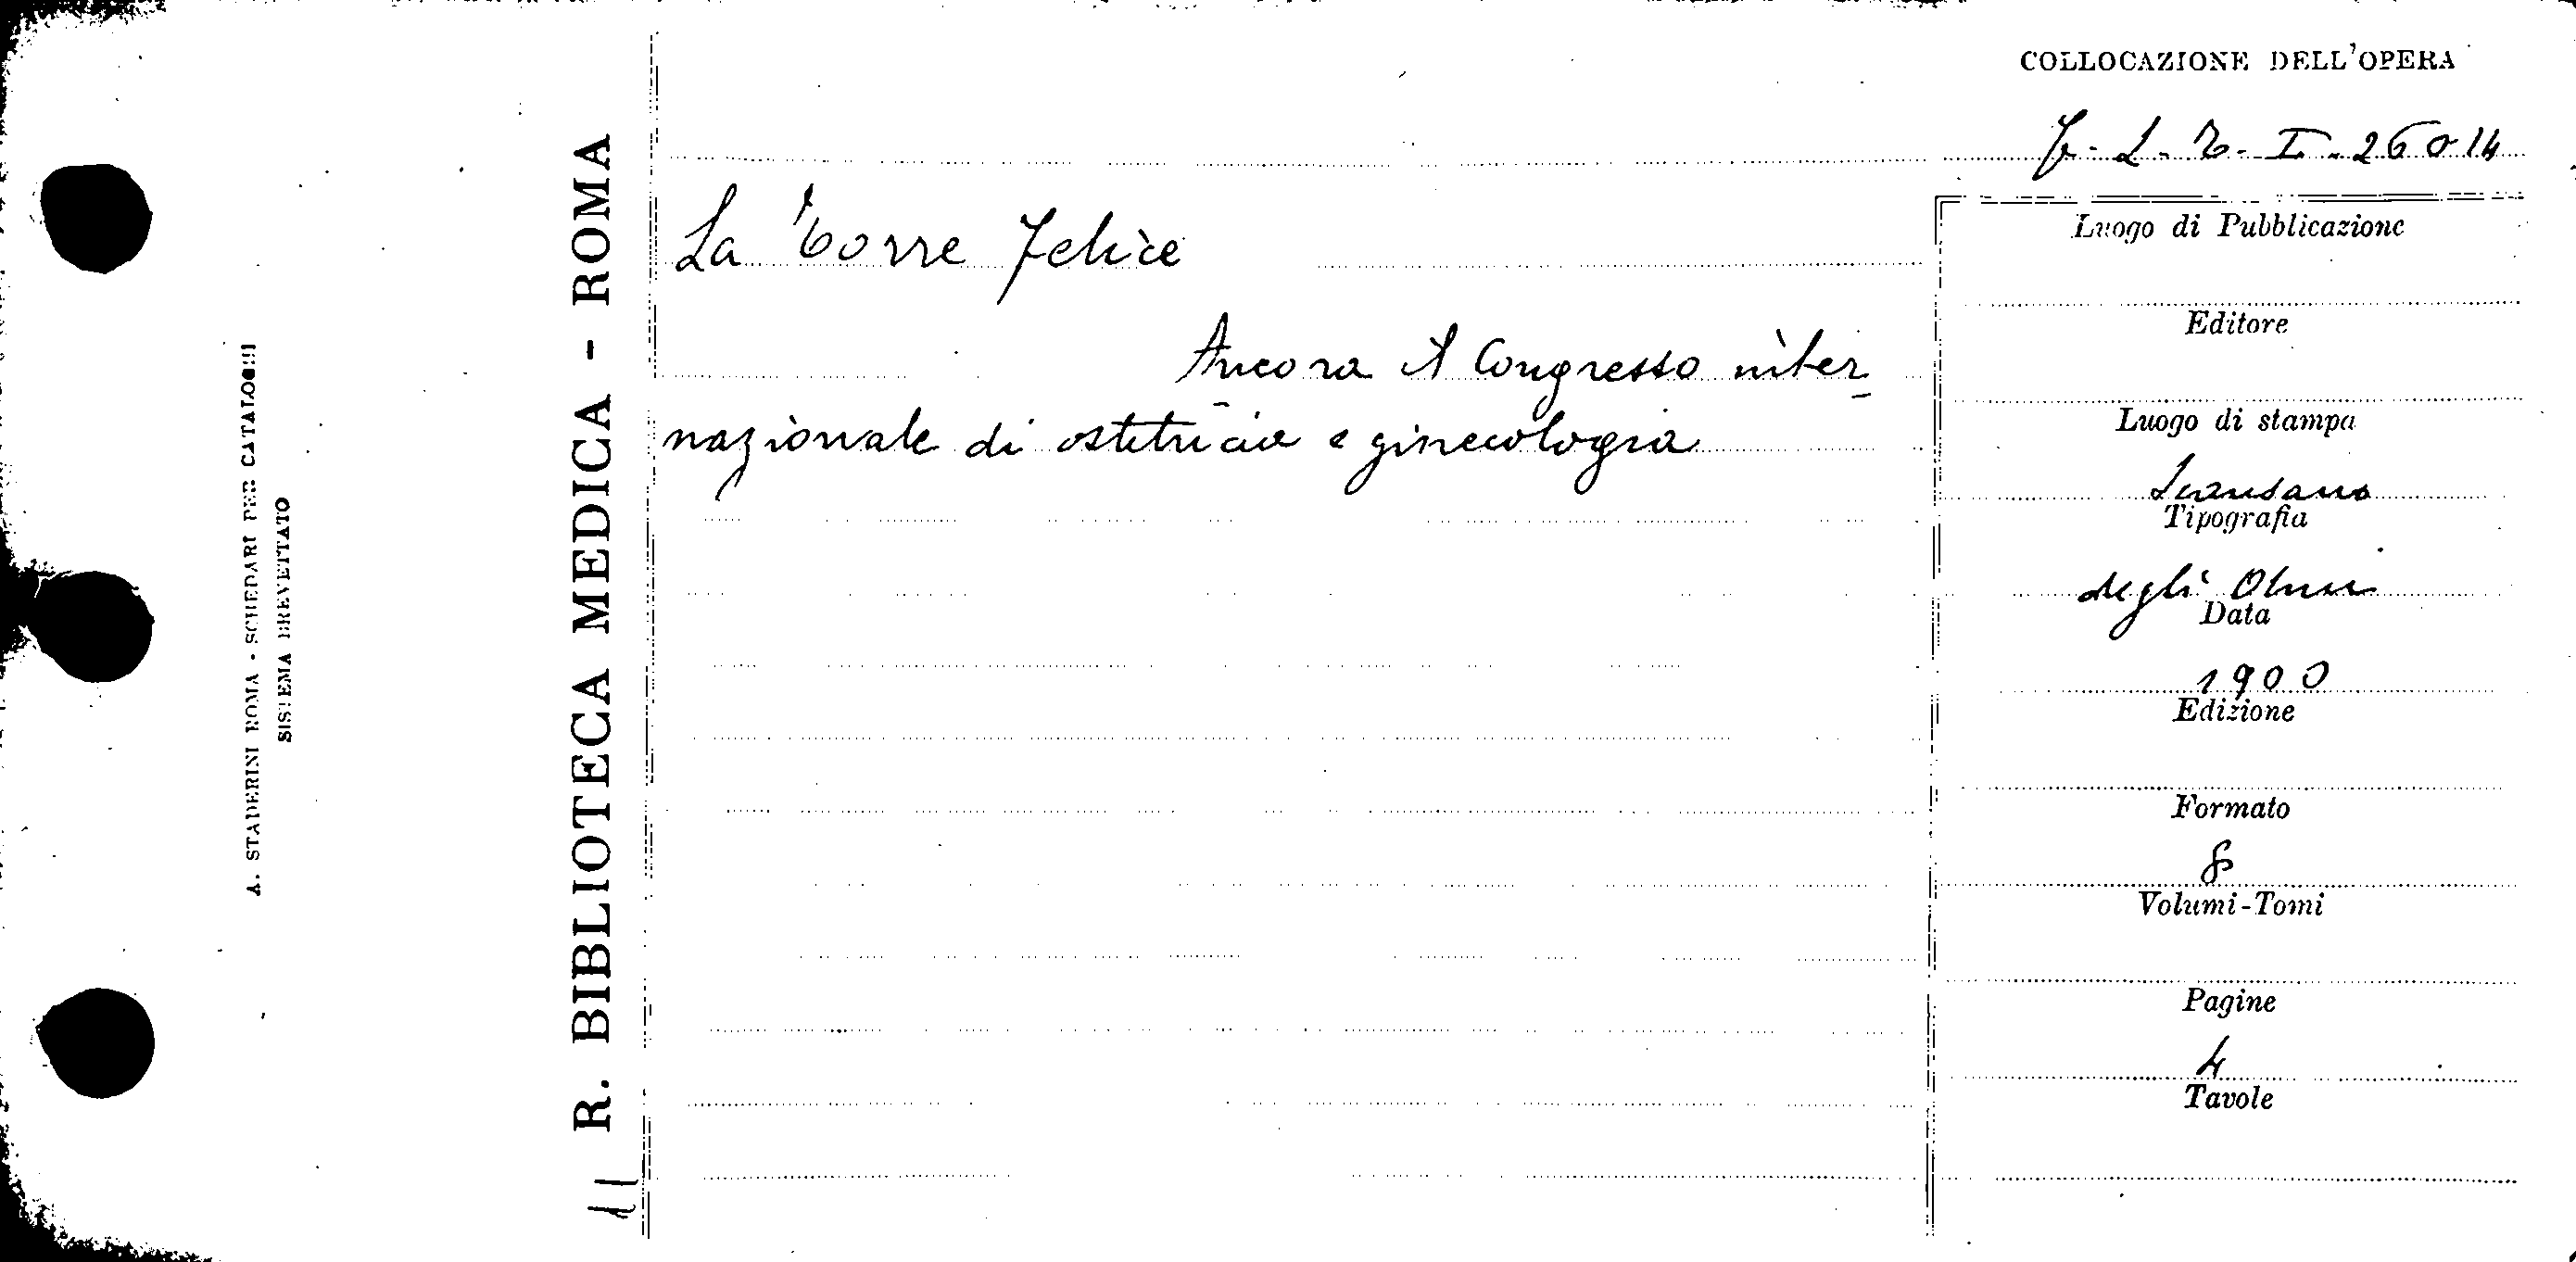 COLLOCAZIONE DELL'OPERA
F. L. T. I. 26014
La Torre Felice
Ancora il Congresso inter
nazionale di ostetricia e ginecologia
Luogo di Pubblicazione
Editore
Luogo di stampa
Tipografia
degli Olmi
Data
1900
Edizione
Formato
8
Volumi-Tomi
Pagine
4
Tavole
R. BIBLIOTECA MEDICA - ROMA
A. STADERINI ROMA - SCHEDARI PER CATALOGHI
SISTEMA BREVETTATO